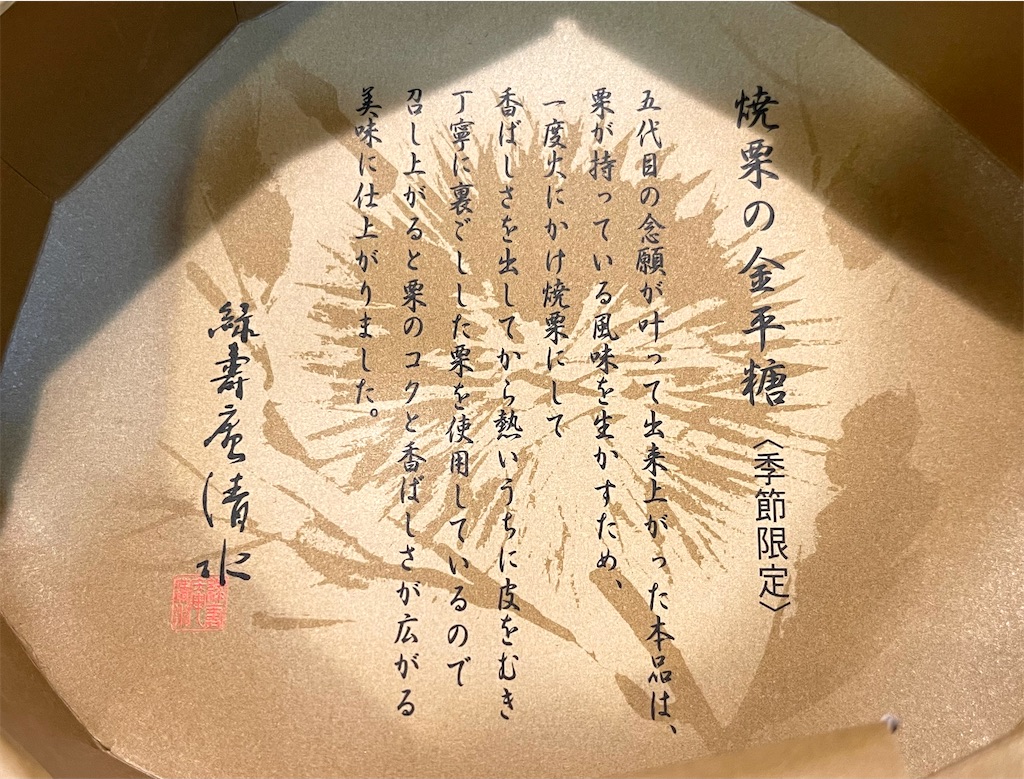 焼栗の金平糖〈季節限定〉
五代目の念願が叶って出来上がった本品は、
栗が持っている風味を生かすため、
一度火にかけ焼栗にして
香ばしさを出してから熱いうちに皮をむき
丁寧に裏ごしした栗を使用しているので
召し上がると栗のコクと香ばしさが広がる
美味に仕上がりました。
緑壽庵清水